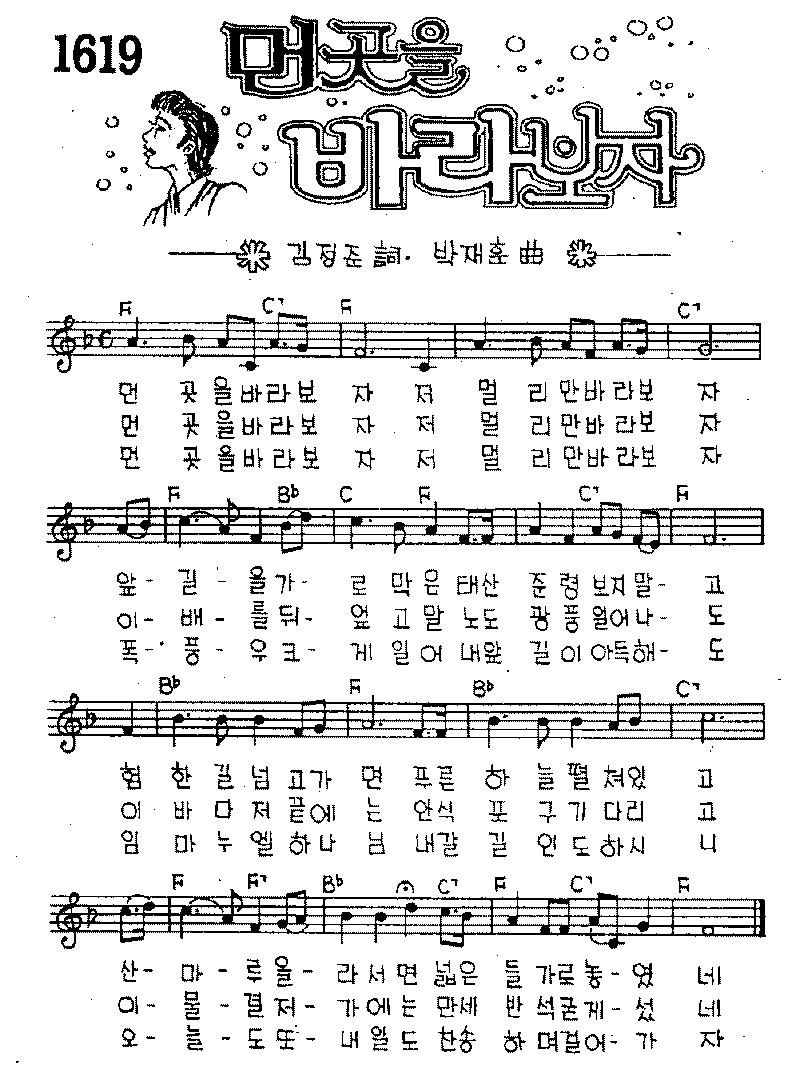 1619
먼 곳을
바라보자
김정준 詞. 박재훈 曲
F C7 F C7
먼 곳을바라보 자 저 멀 리만바라보 자
먼 곳을바라보 자 저 멀 리만바라보 자
먼 곳을바라보 자 저 멀 리만바라보 자
F Bb C F C7 F
앞- 길 - 을가 - 로 막은태산 준령보지말- 고
이- 배- 를뒤- 엎 고말노도 광풍일어나- 도
폭- 풍- 우크- 게일어내앞 길이아득해- 도
Bb F Bb C7
험 한 길넘고가 면 푸른 하 늘펼쳐있 고
이 바 다저끝에 는 안식 포 구기다리 고
임 마누엘하나 님 내갈 길 인도하시 니
F F7 Bb C7 F C7 F
산- 마- 루올- 라서면넓은 들가로놓-였 네
이- 물- 결저- 가에는만세 반석굳게-섰 네
오- 늘- 도또- 내일도찬송 하며걸어-가 자